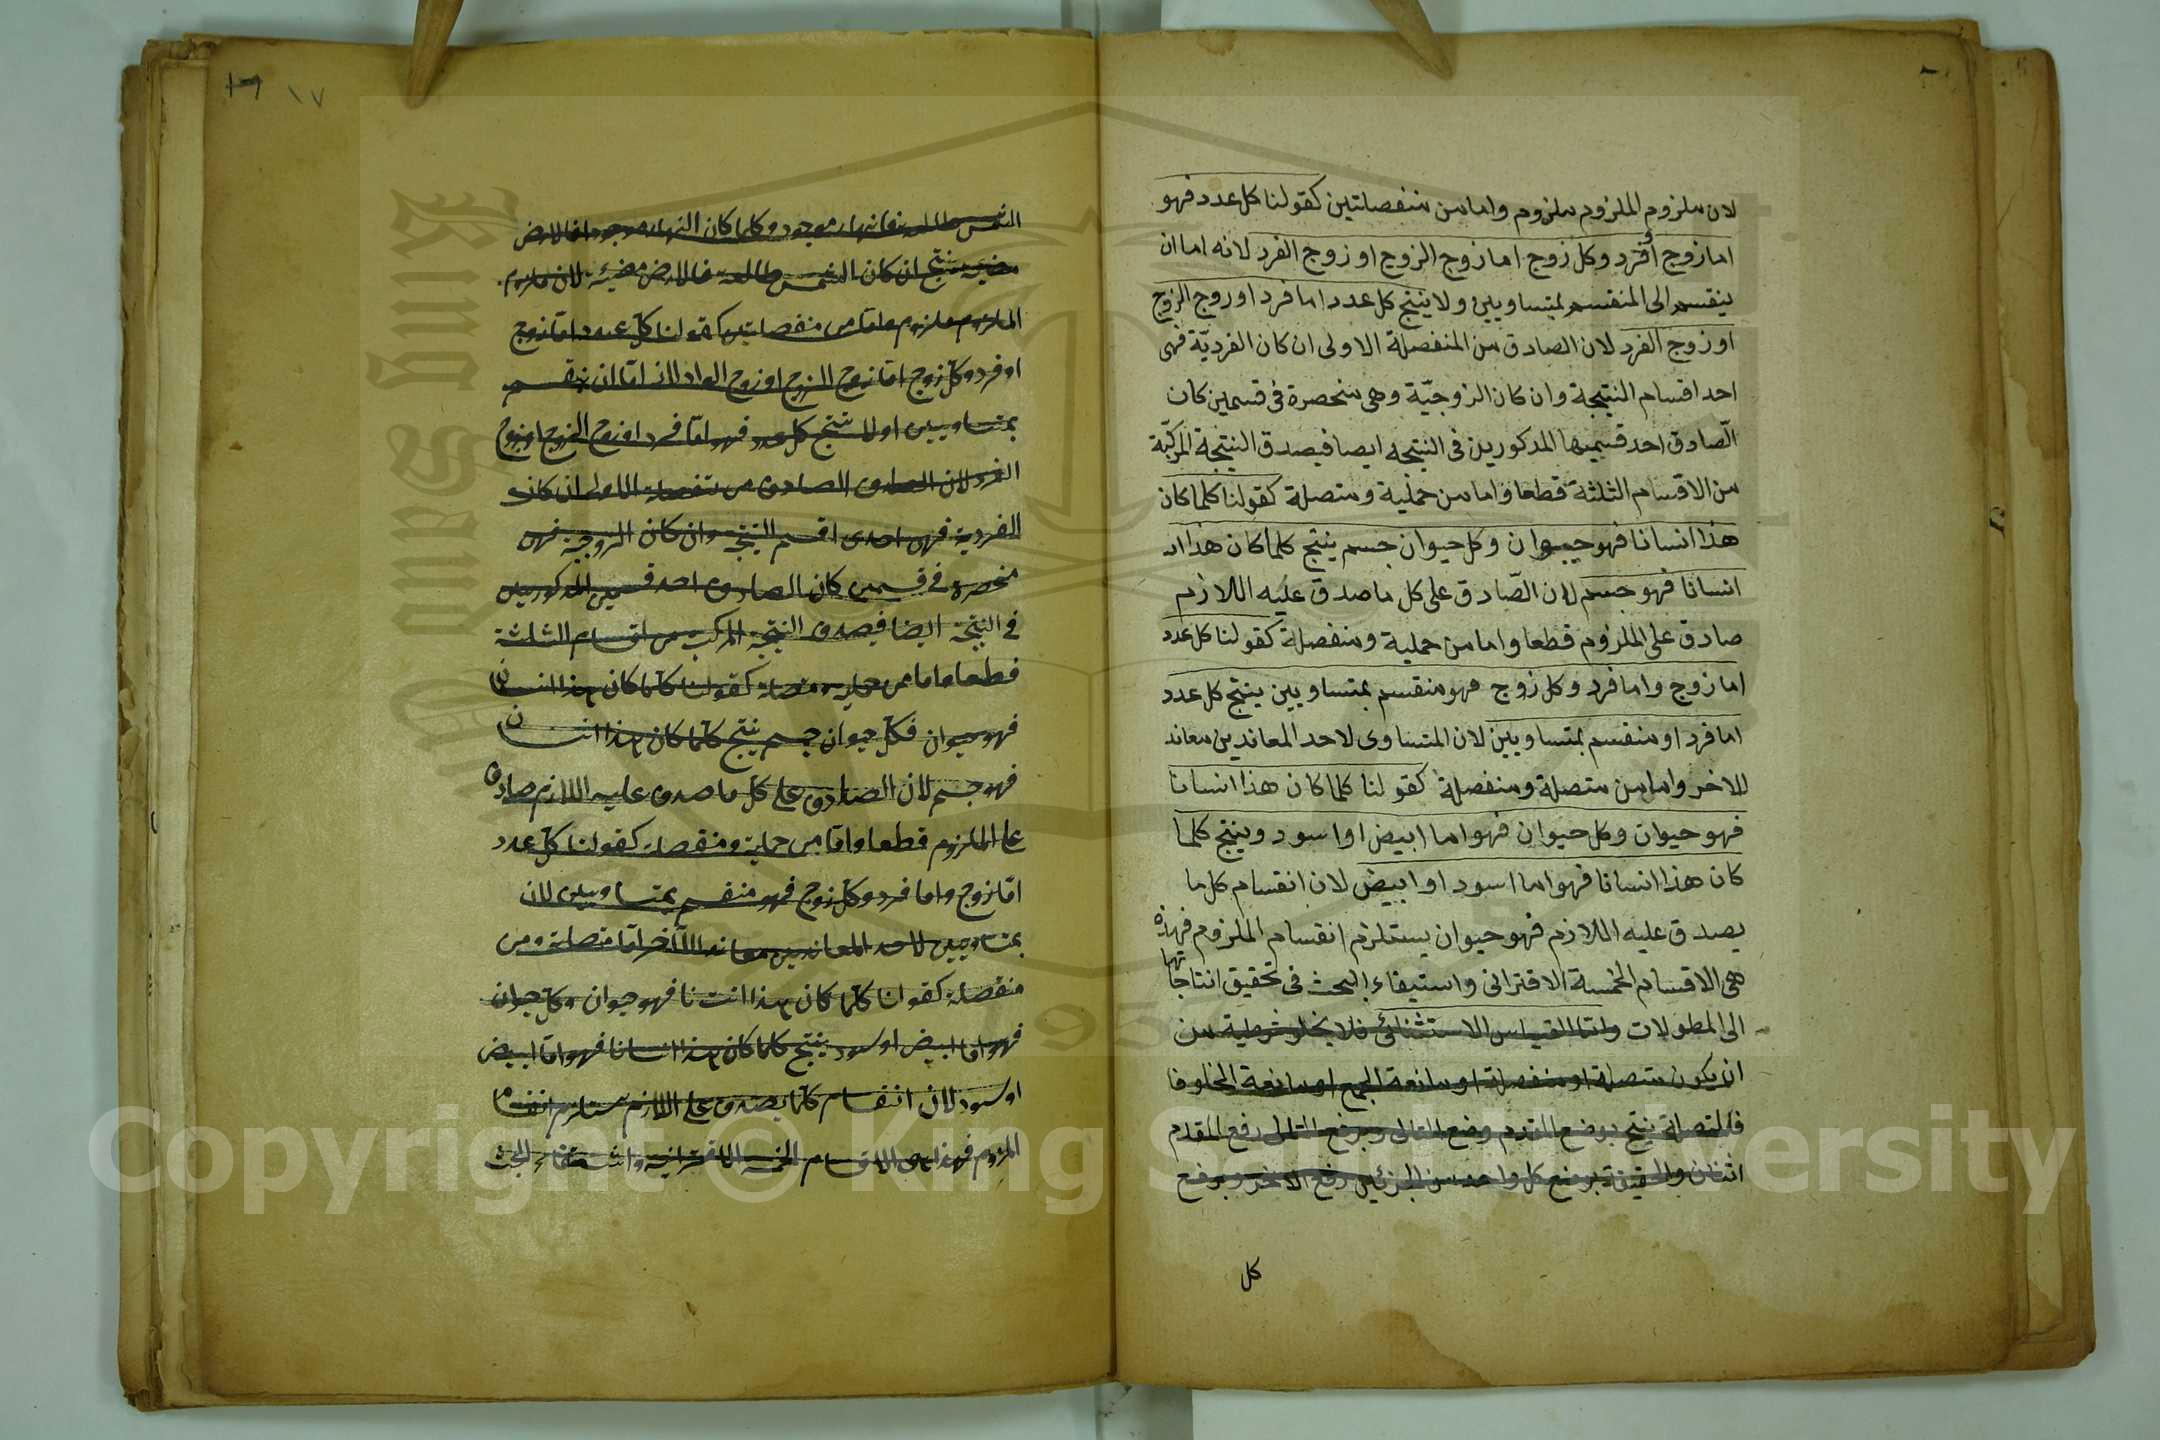 لان ملزوم الملزوم ملزوم واما من منفصلتين كقولنا كل عدد فهو
اما زوج او فرد وكل زوج اما زوج الزوج او زوج الفرد لانه اما ان
ينقسم الى المنقسم بمتساويين ولا ينتج كل عدد اما فرد او زوج الزوج
او زوج الفرد لان الصادق من المنفصلة الاولى ان كان الفرديّة فهى
احد اقسام النتيجة وان كان الزوجيّة وهى منحصرة فى قسمين كان
الصّادق احد قسيميها المذكورين فى النتيجه ايضا فيصدق النتيجة المركّبة
من الاقسام الثلثة قطعا واما من حملية ومتصلة كقولنا كلما كان
هذا انسانا فهو حيوان وكل حيوان جسم ينتج كلما كان هذا
انسانا فهو جسم لان الصّادق على كل ما صدق عليه اللازم
صادق على الملزوم قطعا واما من حملية ومنفصلة كقولنا كل عدد
اما زوج واما فرد وكل زوج فهو منقسم بمتساويين ينتج كل عدد
اما فرد او منقسم بمتساويين لان المتساوى لاحد المعاندين معاند
للاخر واما من متصلة ومنفصلة كقولنا كلما كان هذا انسانا
فهو حيوان وكل حيوان فهو اما ابيض او اسود وينتج كلما
كان هذا انسانا فهو اما اسود او ابيض لان انقسام كل ما
يصدق عليه اللازم فهو حيوان يستلزم انقسام الملزوم فهذه
هى الاقسام الخمسة الاقترانى واستيفاء البحث فى تحقيق انتاجاتها
الى المطولات واما القياس الاستثنائى فلا يخلو شرطية من
ان يكون متصلة او منفصلة او مانعة الجمع او مانعة الخلو فا
فالمتصلة ينتج بوضع المقدم وضع التالى وبرفع التالى رفع المقدم
اثنان والحقيقة بوضع كل واحد من الجزئين رفع الاخر وبرفع
كل
١٦ ١٧
الشمس طالعة فالنهار موجود وكلما كان النهار موجودا فالارض
مضيئة ينتج ان كان الشمس طالعة فالارض مضيئة لان ملزوم
الملزوم ملزوم واما من منفصلتين كقولنا كل عدد اما زوج
او فرد وكل زوج اما زوج الزوج او زوج الفرد لانه اما ان ينقسم
بمتساويين او لا ينتج كل عدد فهو اما فرد او زوج الزوج او زوج
الفرد لان الصادق الصادق من منفصلة الاولى ان كانت
الفردية فهى احدى اقسم النتيجة وان كان الزوجية فهى
منحصرة فى قسمين كان الصادق احد قسمين المذكورين
فى النتيجة ايضا فيصدق النتيجة المركب من اقسام الثلثة
قطعا واما من حملية ومتصلة كقولنا كلما كان هذا انسان
فهو حيوان فكل حيوان جسم ينتج كلما كان هذا انسان
فهو جسم لان الصادق على كل ما صدق عليه اللازم صادق
على الملزوم قطعا واما من حملية ومنفصلة كقولنا كل عدد
اما زوج واما فرد وكل زوج فهو منقسم بمتساويين لان
بمتساويين لاحد المعاندين معاند الآخر اما متصلة ومن
منفصلة كقولنا كلما كان هذا انسانا فهو حيوان وكل حيوان
فهو اما ابيض او اسود ينتج كلما كان هذا انسانا فهو اما ابيض
او اسود لان انقسام كلما يصدق على اللازم يستلزم انقسام
الملزوم فهذا هى الاقسام الخمسة الاقترانية واستيفاء البحث
King Saud University
1957
Copyright © King Saud University